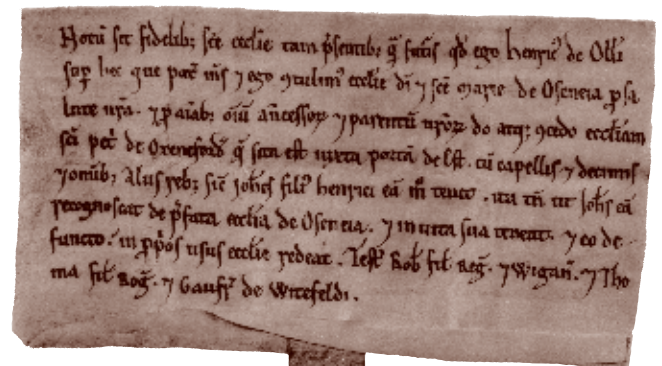 Notū sit fidelib; scē ecclie tam p̄sentib; q̄ fut'is qd ego henric' de Olli
sup̱ hec que pat' m's ⁊ ego ꝯtulim' ecclie di ⁊ scē marie de Oseneia ꝑ sa
lute nr̄a. ⁊ ꝑ aīab; oīū ancessoꝝ ⁊ parentū nr̄oꝝ do atq; ꝯcedo eccliam
sc̄i pet' de Oxeneford q̄ sita est iuxta portā de Est. cū capellis ⁊ decimis
⁊ omīb; aliis reb; sic̄ johēs fili' henrici eā m̄ tenet. ita tn̄ ut Johs eā
recognoscat de p̄fata ecclia de Oseneia. ⁊ in uita sua teneat. ⁊ eo de
functo. in ꝓp̄os usus ecclie redeat. Test' Rob̄ fil̄ Reḡ. ⁊ Wigan̄. ⁊ Tho
ma fil̄ Roḡ. ⁊ Gaufr' de Witefeldi.